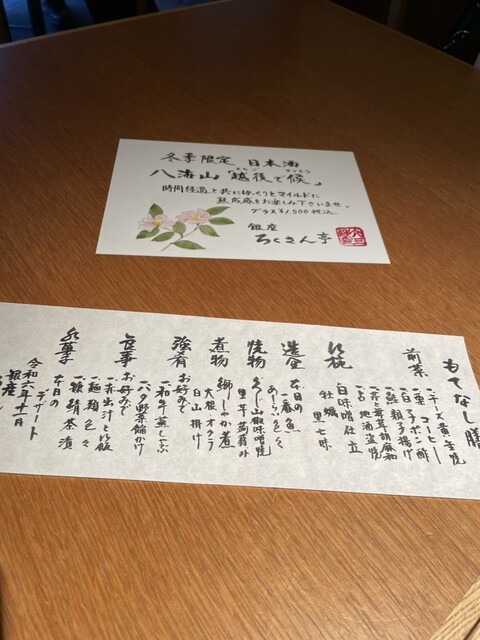 冬季限定 日本酒
八海山「越後で候」
時間経過と共にゆっくりとマイルドに
熟成感をお楽しみ下さいませ。
グラス¥1,500 税込
銀座
ろくさん亭
もてなし膳
前菜
一、チーズ黄金焼
一、栗コーヒー
一、子ポン酢
一、鮭親子揚げ
胡麻和
一、地酒盗焼
白味噌仕立
牡蠣 黒七味
造里
本日の
一番魚
あしらい色々
焼物
山椒味噌焼
里芋
煮物
鰤しゃぶ煮
大根・オクラ
白山掛け
強肴
お好みで
一、和牛蒸ししゃぶ
一、八夕野菜餡かけ
食事
お好みで
一、赤出汁とご飯
一、麺類色々
一、鯖茶漬
水菓
本日の
デザート
令和六年十一月
銀座